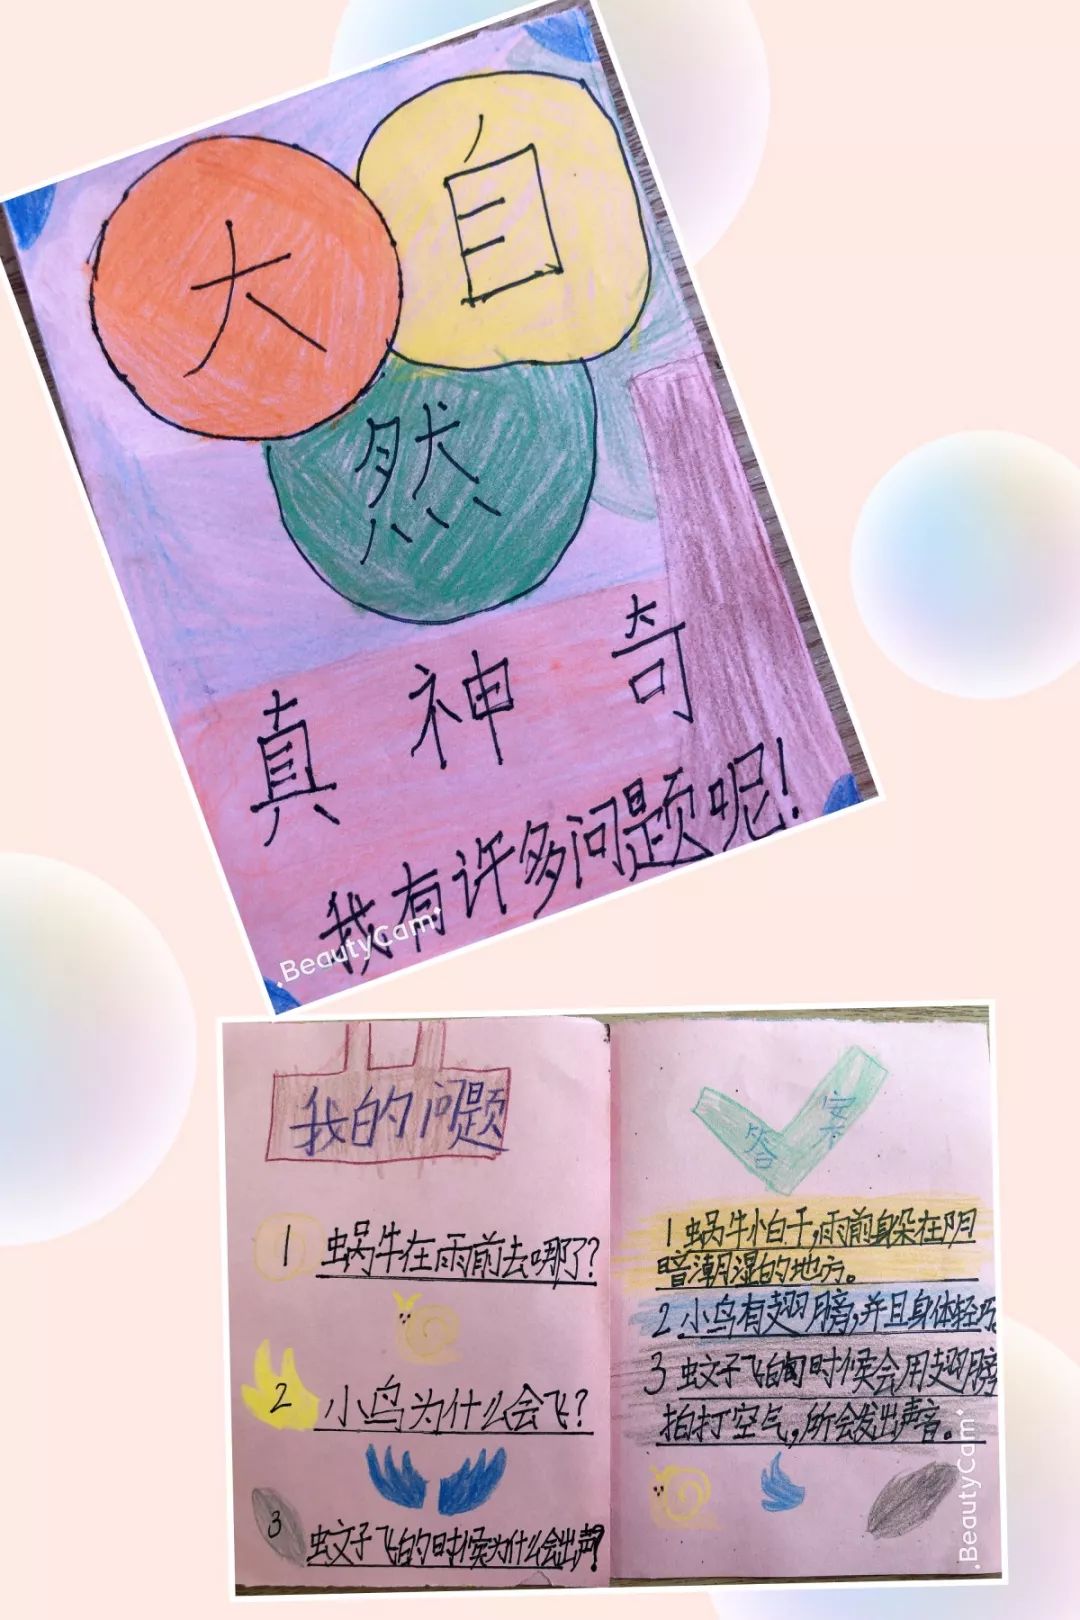 大自
然
真神奇
我有许多问题呢!
BeautyCam
我的问题
1 蜗牛在雨前去哪了?
2 小鸟为什么会飞?
3 蚊子飞的时候为什么会出声?
答案
1 蜗牛怕干,雨前躲在阴
暗潮湿的地方。
2 小鸟有翅膀,并且身体轻巧
3 蚊子飞的时候会用翅膀
拍打空气,所会发出声音。
BeautyCam